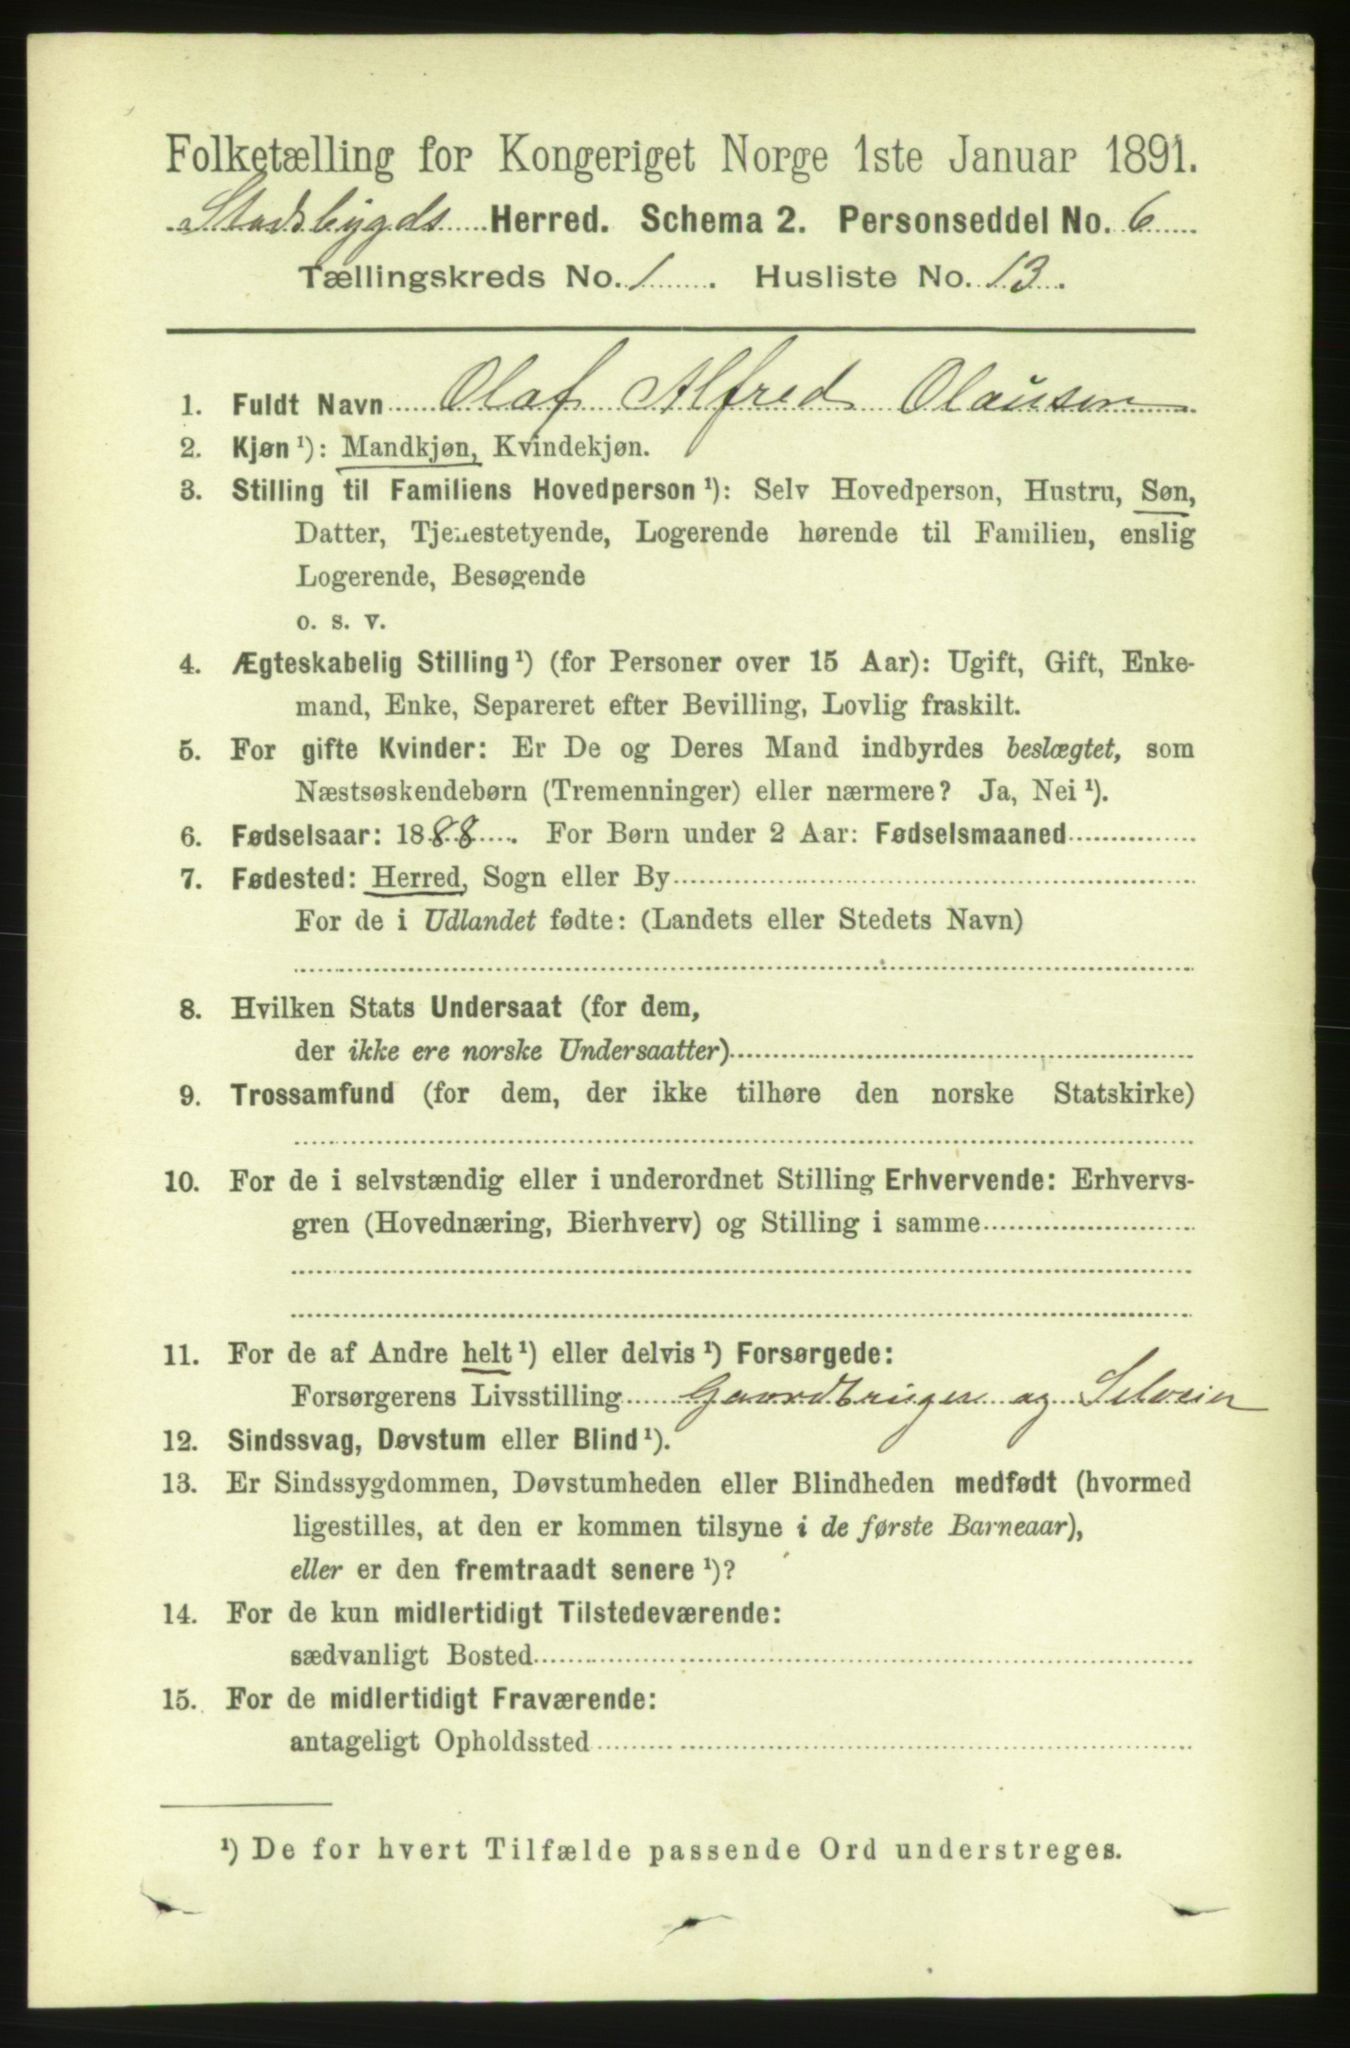 Folketælling for Kongeriget Norge 1ste Januar 1891.
Stadsbygds Herred. Schema 2. Personseddel No. 6
Tællingskreds No. 1. Husliste No. 13.
1. Fuldt Navn Olaf Alfred Olausen
2. Kjøn¹): Mandkjøn, Kvindekjøn.
3. Stilling til Familiens Hovedperson¹): Selv Hovedperson, Hustru, Søn,
Datter, Tjenestetyende, Logerende hørende til Familien, enslig
Logerende, Besøgende
o. s. v.
4. Ægteskabelig Stilling¹) (for Personer over 15 Aar): Ugift, Gift, Enke-
mand, Enke, Separeret efter Bevilling, Lovlig fraskilt.
5. For gifte Kvinder: Er De og Deres Mand indbyrdes beslægtet, som
Næstsøskendebørn (Tremenninger) eller nærmere? Ja, Nei¹).
6. Fødselsaar: 1888. For Børn under 2 Aar: Fødselsmaaned
7. Fødested: Herred, Sogn eller By
For de i Udlandet fødte: (Landets eller Stedets Navn)
8. Hvilken Stats Undersaat (for dem,
der ikke ere norske Undersaatter)
9. Trossamfund (for dem, der ikke tilhøre den norske Statskirke)
10. For de i selvstændig eller i underordnet Stilling Erhvervende: Erhvervs-
gren (Hovednæring, Bierhverv) og Stilling i samme
11. For de af Andre helt¹) eller delvis¹) Forsørgede:
Forsørgerens Livsstilling Gaardbruger og Selveier
12. Sindssvag, Døvstum eller Blind¹).
13. Er Sindssygdommen, Døvstumheden eller Blindheden medfødt (hvormed
ligestilles, at den er kommen tilsyne i de første Barneaar),
eller er den fremtraadt senere¹)?
14. For de kun midlertidigt Tilstedeværende:
sædvanligt Bosted
15. For de midlertidigt Fraværende:
antageligt Opholdssted
¹) De for hvert Tilfælde passende Ord understreges.